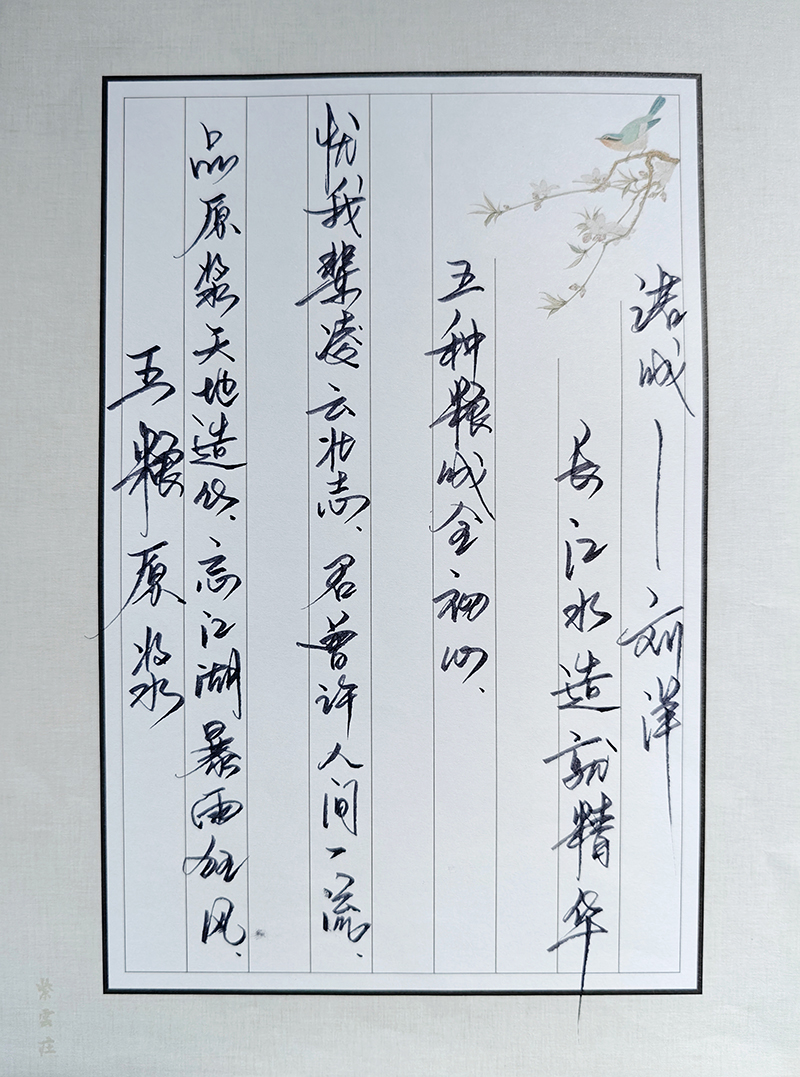 诺成——刘洋
长江水造就精华
五种粮成全初心、
忧我辈凌云壮志、君曾许人间一流、
品原浆天地造化、忘江湖暴雨狂风、
五粮原浆
紫雲庄